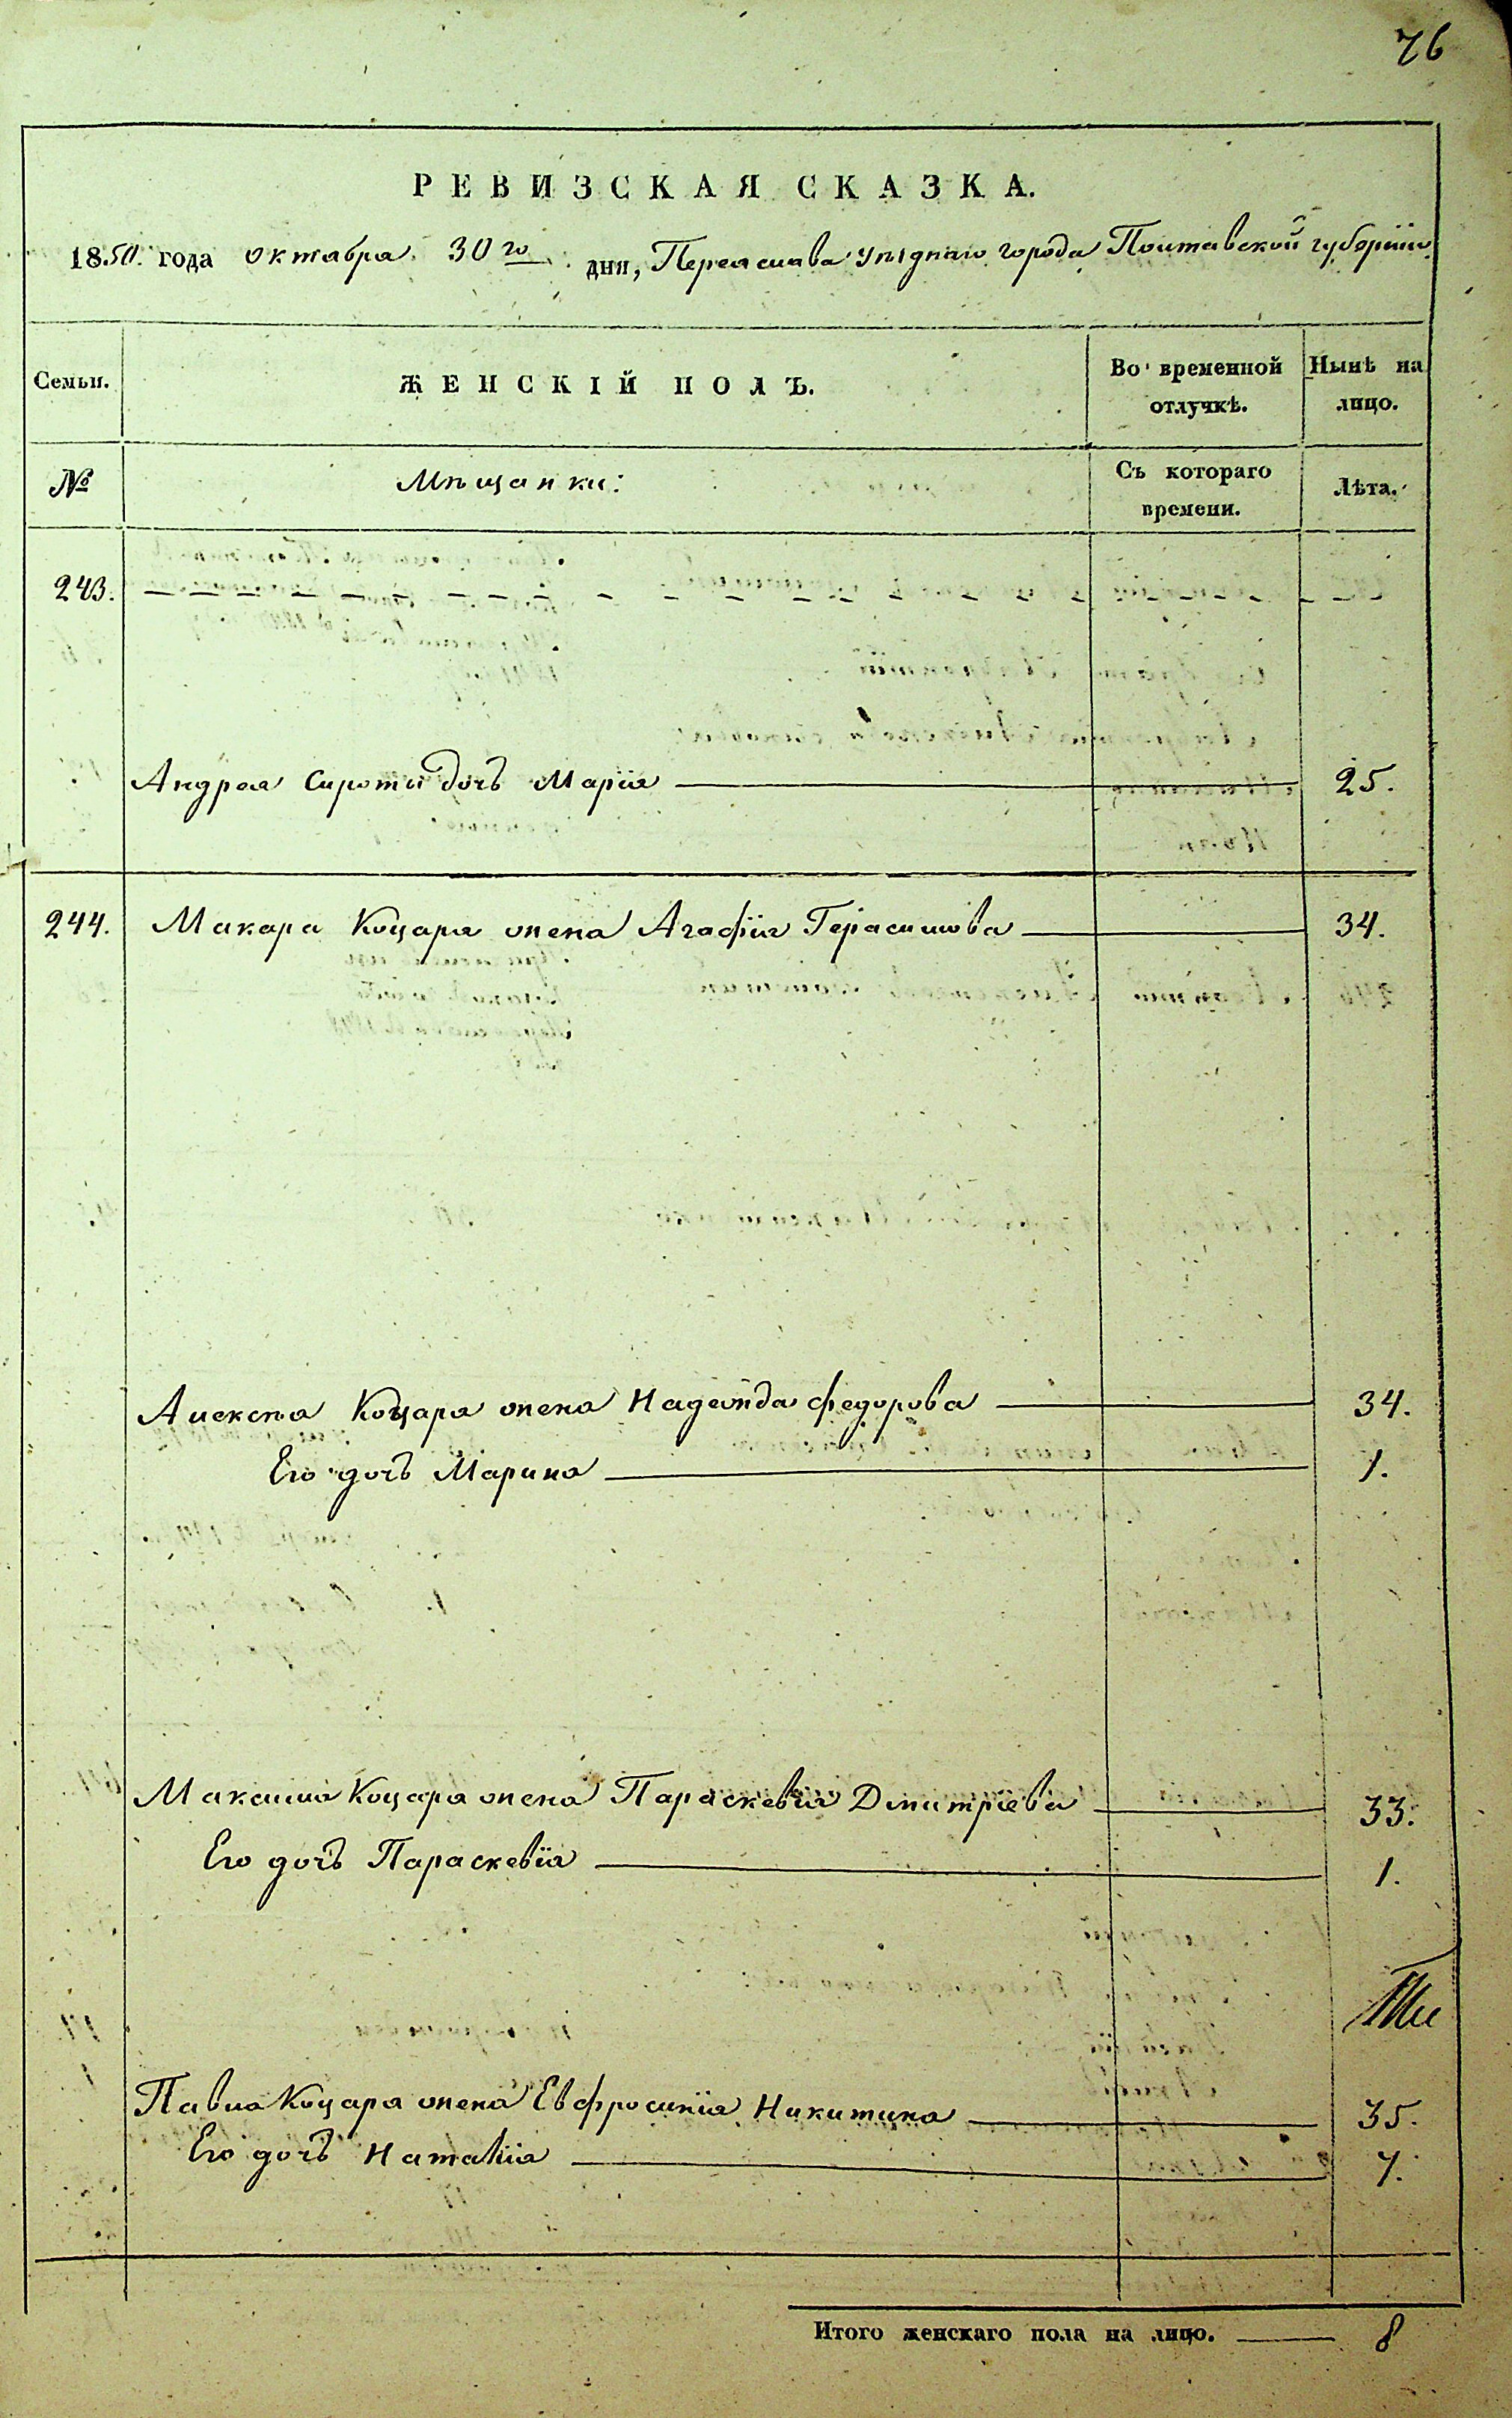 76
РЕВИЗСКАЯ СКАЗКА.
1850. года октября 30го дня, Переяслава уѣзднаго города Полтавской губерніи
Семьи.
ЖЕНСКІЙ ПОЛЪ.
Во временной отлучкѣ.
Нынѣ на лицо.
№
Мѣщанки:
Съ котораго времени.
Лѣта.
243.
Андрея Сироты дочь Марія 25.
244. Макара Коцаря жена Агафія Герасимова 34.
Алексѣя Коцаря жена Надежда Федорова 34.
Его дочь Марина 1.
Максима Коцаря жена Параскевія Дмитріева 33.
Его дочь Параскевія 1.
Павла Коцаря жена Евфросинія Никитина 35.
Его дочь Наталія 7.
Итого женскаго пола на лицо. 8